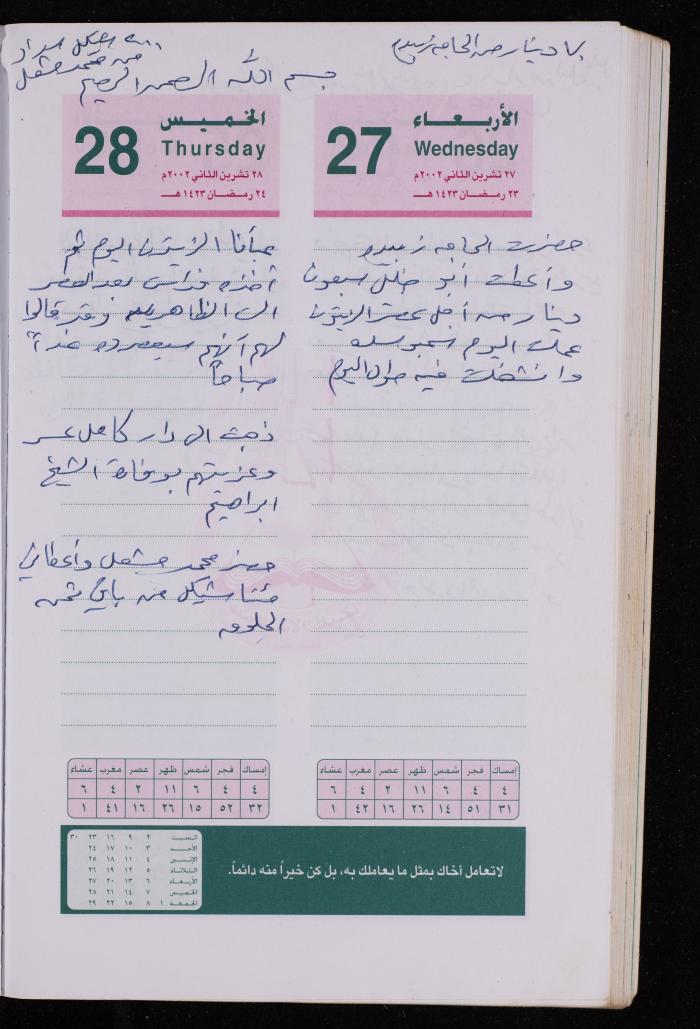 ٧٠ دينار من الحاجه زبيده
٢٠٠ شيكل سداد
من محمد مشعل
بسم الله الرحمن الرحيم
الأربعاء
27
Wednesday
٢٧ تشرين الثاني ٢٠٠٢م
٢٣ رمضان ١٤٢٣هـ
حضرت الحاجه زبيده
وأعطت أبو خليل سبعون
دينار من أجل عصر الزيتون
عملت اليوم سمبوسه
وانشغلت فيه طوال اليوم
الخميس
28
Thursday
٢٨ تشرين الثاني ٢٠٠٢م
٢٤ رمضان ١٤٢٣هـ
عبأنا الزيتون اليوم ثم
أخذه فراس بعد العصر
الى الظاهريه وقد قالوا
لهم أنهم سيعصروه غداً
صباحاً
ذهبت الى دار كامل
وعزيتهم بوفاة الشيخ
ابراهيم
حضر محمد مشعل وأعطاني
مئتا شيكل من باقي ثمن
امساك فجر شمس ظهر عصر مغرب عشاء
٤ ٤ ٦ ١١ ٢ ٤ ٦
٣١ ٥١ ١٤ ٢٦ ١٦ ٤٢ ١
امساك فجر شمس ظهر عصر مغرب عشاء
٤ ٤ ٦ ١١ ٢ ٤ ٦
٣٢ ٥٢ ١٥ ٢٦ ١٦ ٤١ ١
لاتعامل أخاك بمثل ما يعاملك به، بل كن خيراً منه دائماً.
السبت ٢ ٩ ١٦ ٢٣ ٣٠
الأحد ٣ ١٠ ١٧ ٢٤
الإثنين ٤ ١١ ١٨ ٢٥
الثلاثاء ٥ ١٢ ١٩ ٢٦
الأربعاء ٦ ١٣ ٢٠ ٢٧
الخميس ٧ ١٤ ٢١ ٢٨
الجمعة ١ ٨ ١٥ ٢٢ ٢٩